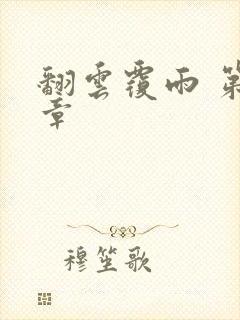 翻雲覆雨 第
章
穆笙歌